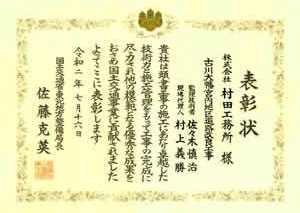 表彰状
株式会社 村田工務所 様
古川大幡宮内地区道路改良工事
監理技術者 佐々木 慎治
現場代理人 村上 義勝
貴社は頭書工事の施工にあたり卓越した
技術力と施工管理をもって工事の完成に
尽力され他の模範となる優秀な成果を
おさめ国土交通事業に貢献されました
よってここに表彰します
令和二年七月十六日
国土交通省東北地方整備局長
佐藤克英